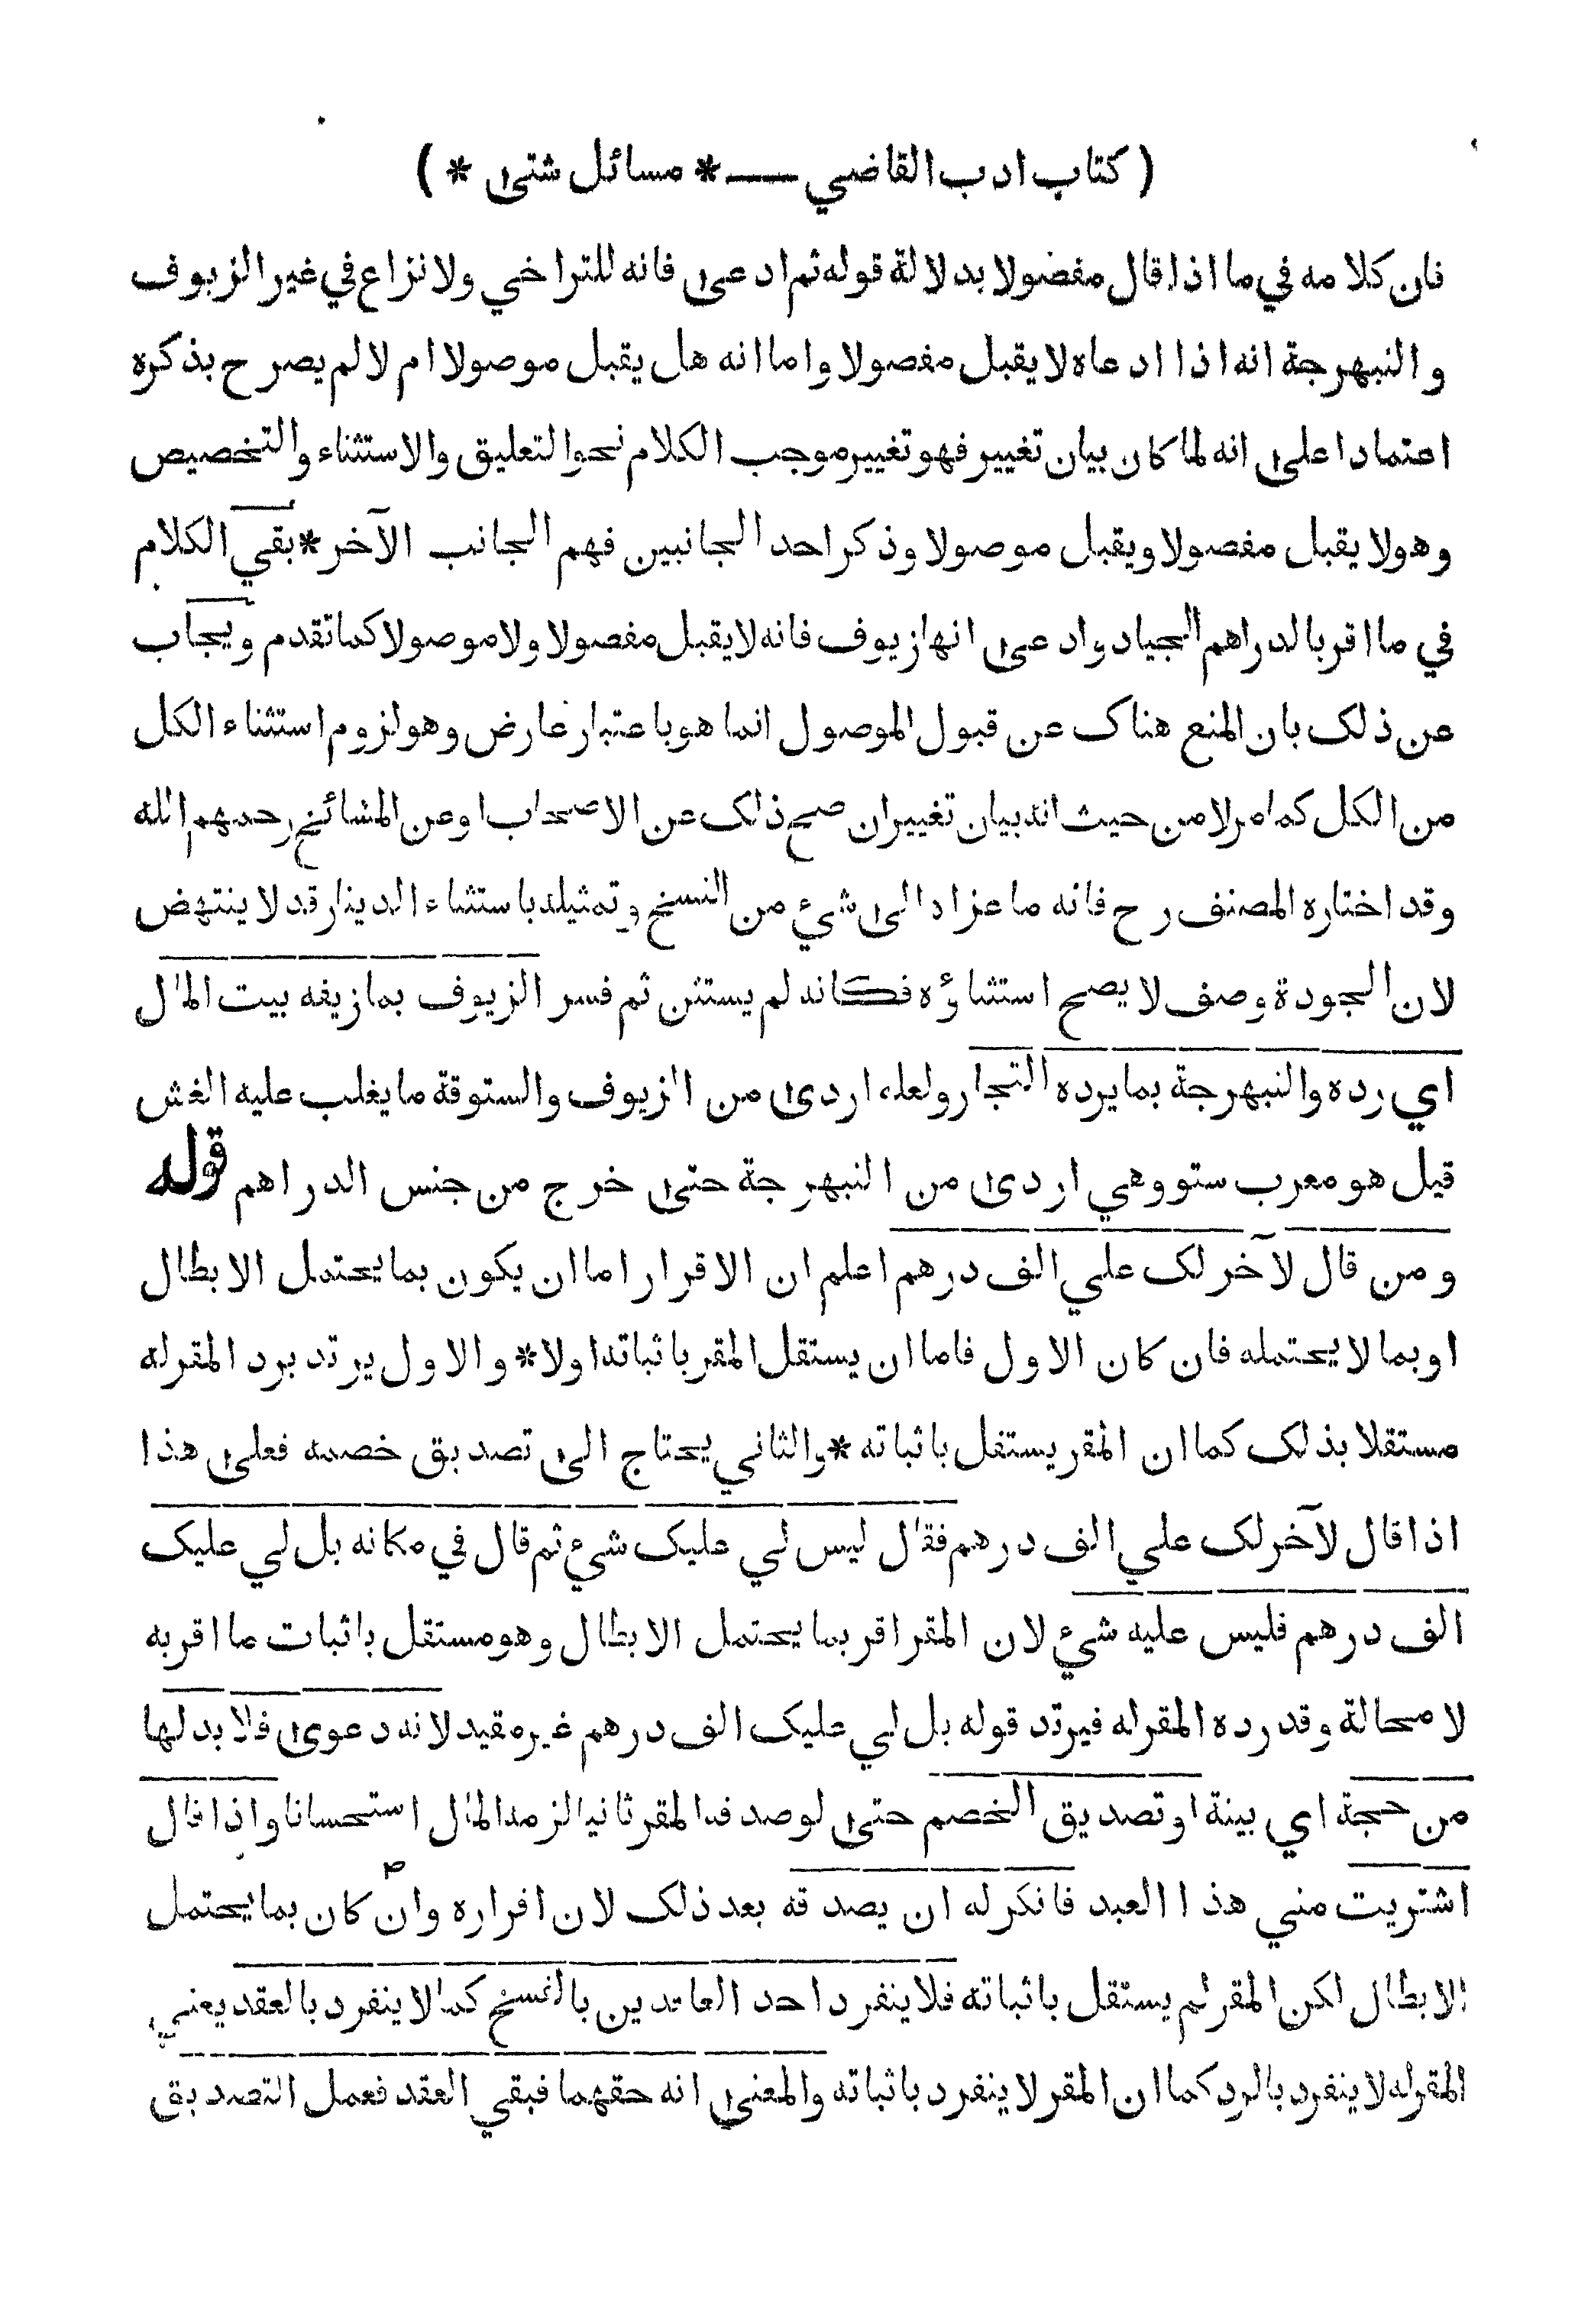 ( كتاب ادب القاضي —— * مسائل شتى * )
فان كلامه في ما اذا قال مفضولا بدلالة قوله ثم ادعى فانه للتراخي ولا نزاع في غير الزيوف
والنبهرجة انه اذا ادعاه لا يقبل مفصولا واما انه هل يقبل موصولا ام لا لم يصرح بذكره
اعتمادا على انه لما كان بيان تغيير فهو تغيير موجب الكلام نحو التعليق والاستثناء والتخصيص
وهو لا يقبل مفصولا ويقبل موصولا وذكر احد الجانبين فهم الجانب الآخر * بقي الكلام
في ما اقر بالدراهم الجياد وادعى انها زيوف فانه لا يقبل مفصولا ولا موصولا كما تقدم ويجاب
عن ذلك بان المنع هناك عن قبول الموصول انما هو باعتبار عارض وهو لزوم استثناء الكل
من الكل كما مر لا من حيث انه بيان تغيير ان صح ذلك عن الاصحاب او عن المشائخ رحمهم الله
وقد اختاره المصنف رح فانه ما عزاد الى شيء من النسخ وتمثيله باستثناء الدينار قد لا ينتهض
لان الجودة وصف لا يصح استثناؤه فكانه لم يستثن ثم فسر الزيوف بما زيفه بيت المال
اي رده والنبهرجة بما يرده التجار ولعله اردى من الزيوف والستوقة ما يغلب عليه الغش
قيل هو معرب ستو وهي اردى من النبهرجة حتى خرج من جنس الدراهم قوله
ومن قال لآخر لك علي الف درهم اعلم ان الاقرار اما ان يكون بما يحتمل الابطال
او بما لا يحتمله فان كان الاول فاما ان يستقل المقر باثباته اولا * والاول يرتد برد المقر له
مستقلا بذلك كما ان المقر يستقل باثباته * والثاني يحتاج الى تصديق خصمه فعلى هذا
اذا قال لآخر لك علي الف درهم فقال ليس لي عليك شيء ثم قال في مكانه بل لي عليك
الف درهم فليس عليه شيء لان المقر اقر بما يحتمل الابطال وهو مستقل باثبات ما اقر به
لا محالة وقد رده المقر له فيرتد قوله بل لي عليك الف درهم غير مقيد لانه دعوى فلا بد لها
من حجة اي بينة او تصديق الخصم حتى لو صدقه المقر ثانيا لزمه المال استحسانا واذا قال
اشتريت مني هذا العبد فانكر له ان يصدقه بعد ذلك لان اقراره وان كان بما يحتمل
الابطال لكن المقر لم يستقل باثباته فلا ينفرد احد العاقدين بالفسخ كما لا ينفرد بالعقد يعني
المقر له لا ينفرد بالرد كما ان المقر لا ينفرد باثباته والمعنى انه حقهما فبقي العقد فعمل التصديق